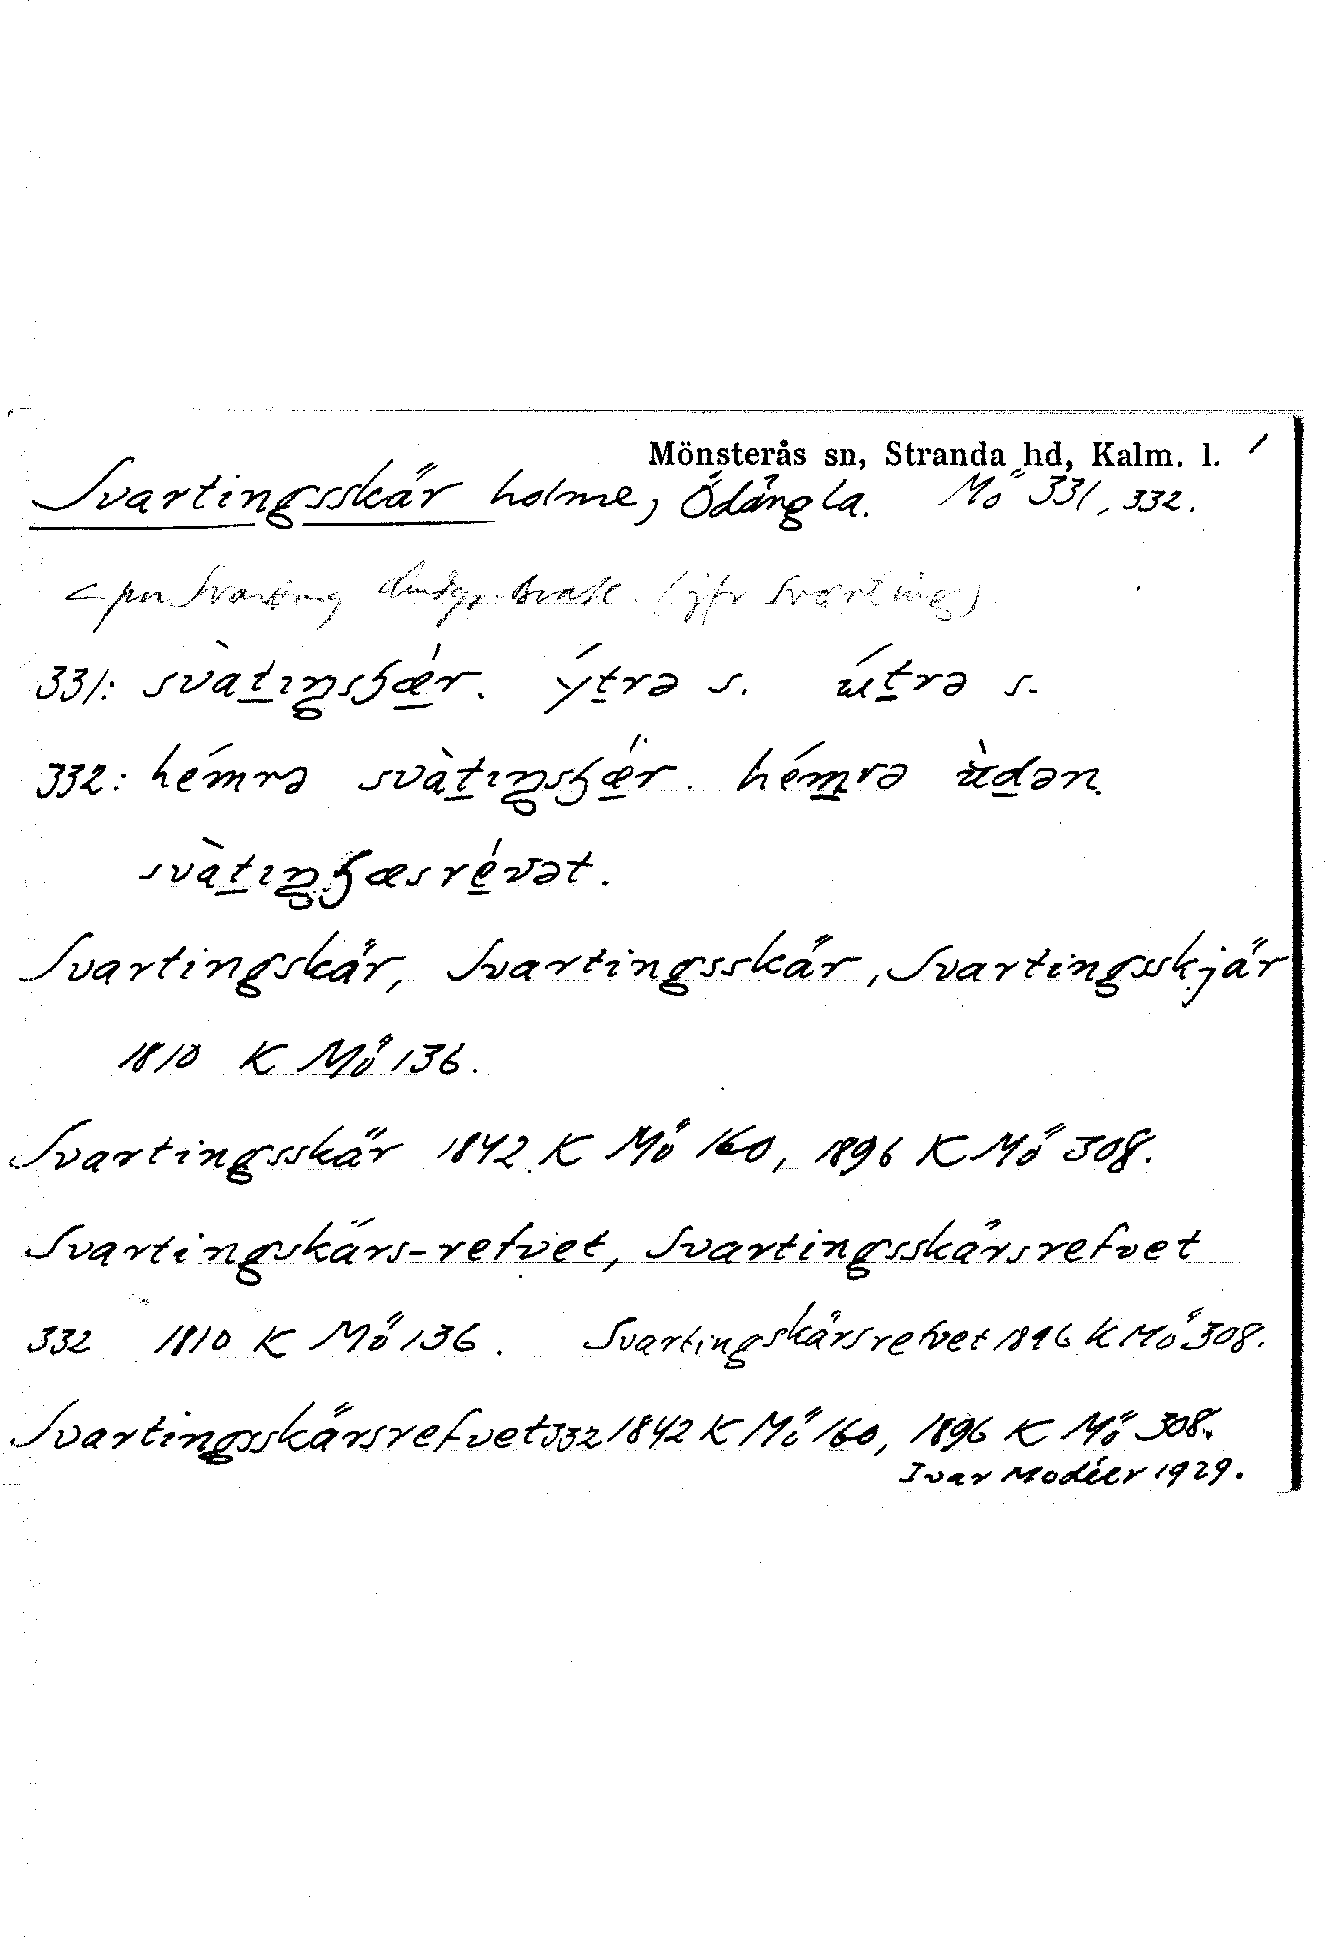 Mönsterås sn, Stranda hd, Kalm. l. 1
Svartingsskär holme, Ödängla. Mö 331, 332.
< pn Svarting (jfr Sværting)
331: svàtıŋsʒǽr. ýtrə s. útrə s.
332: hémrə svàtıŋsʒǽr. hémrə ùdən.
svàtıŋʒæsrévət.
Svartingskär, Svartingsskär, Svartingsskjär
1810 K Mö 136.
Svartingsskär 1842 K Mö 160, 1896 K Mö 308.
Svartingskärs-refvet, Svartingsskärsrefvet
332 1810 K Mö 136. Svartingskärsrefvet 1896 K Mö 308.
Svartingsskärsrefvet 332 1842 K Mö 160, 1896 K Mö 308.
Ivar Modéer 1929.